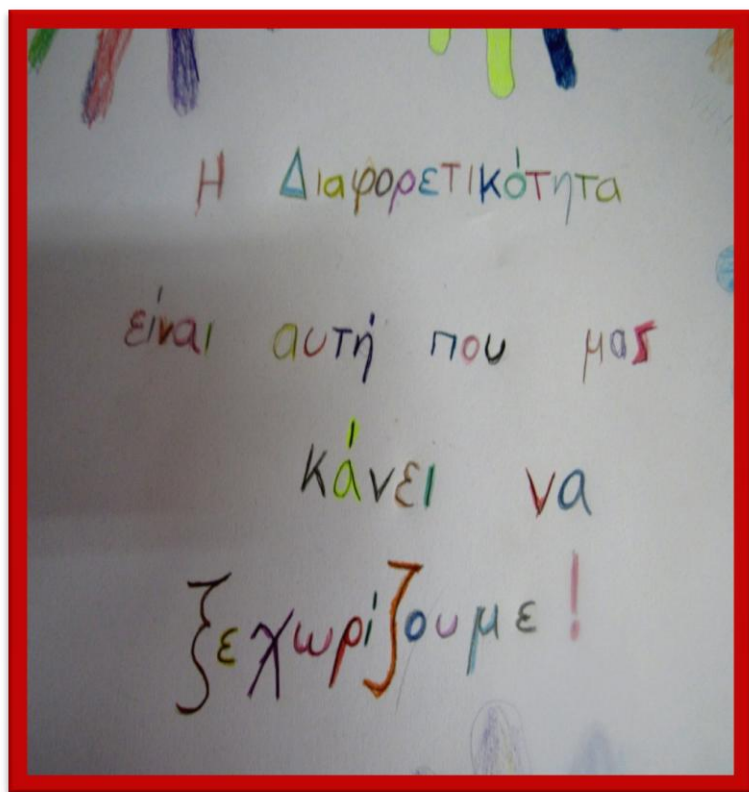 Η Διαφορετικότητα
είναι αυτή που μας
κάνει να
ξεχωρίζουμε!